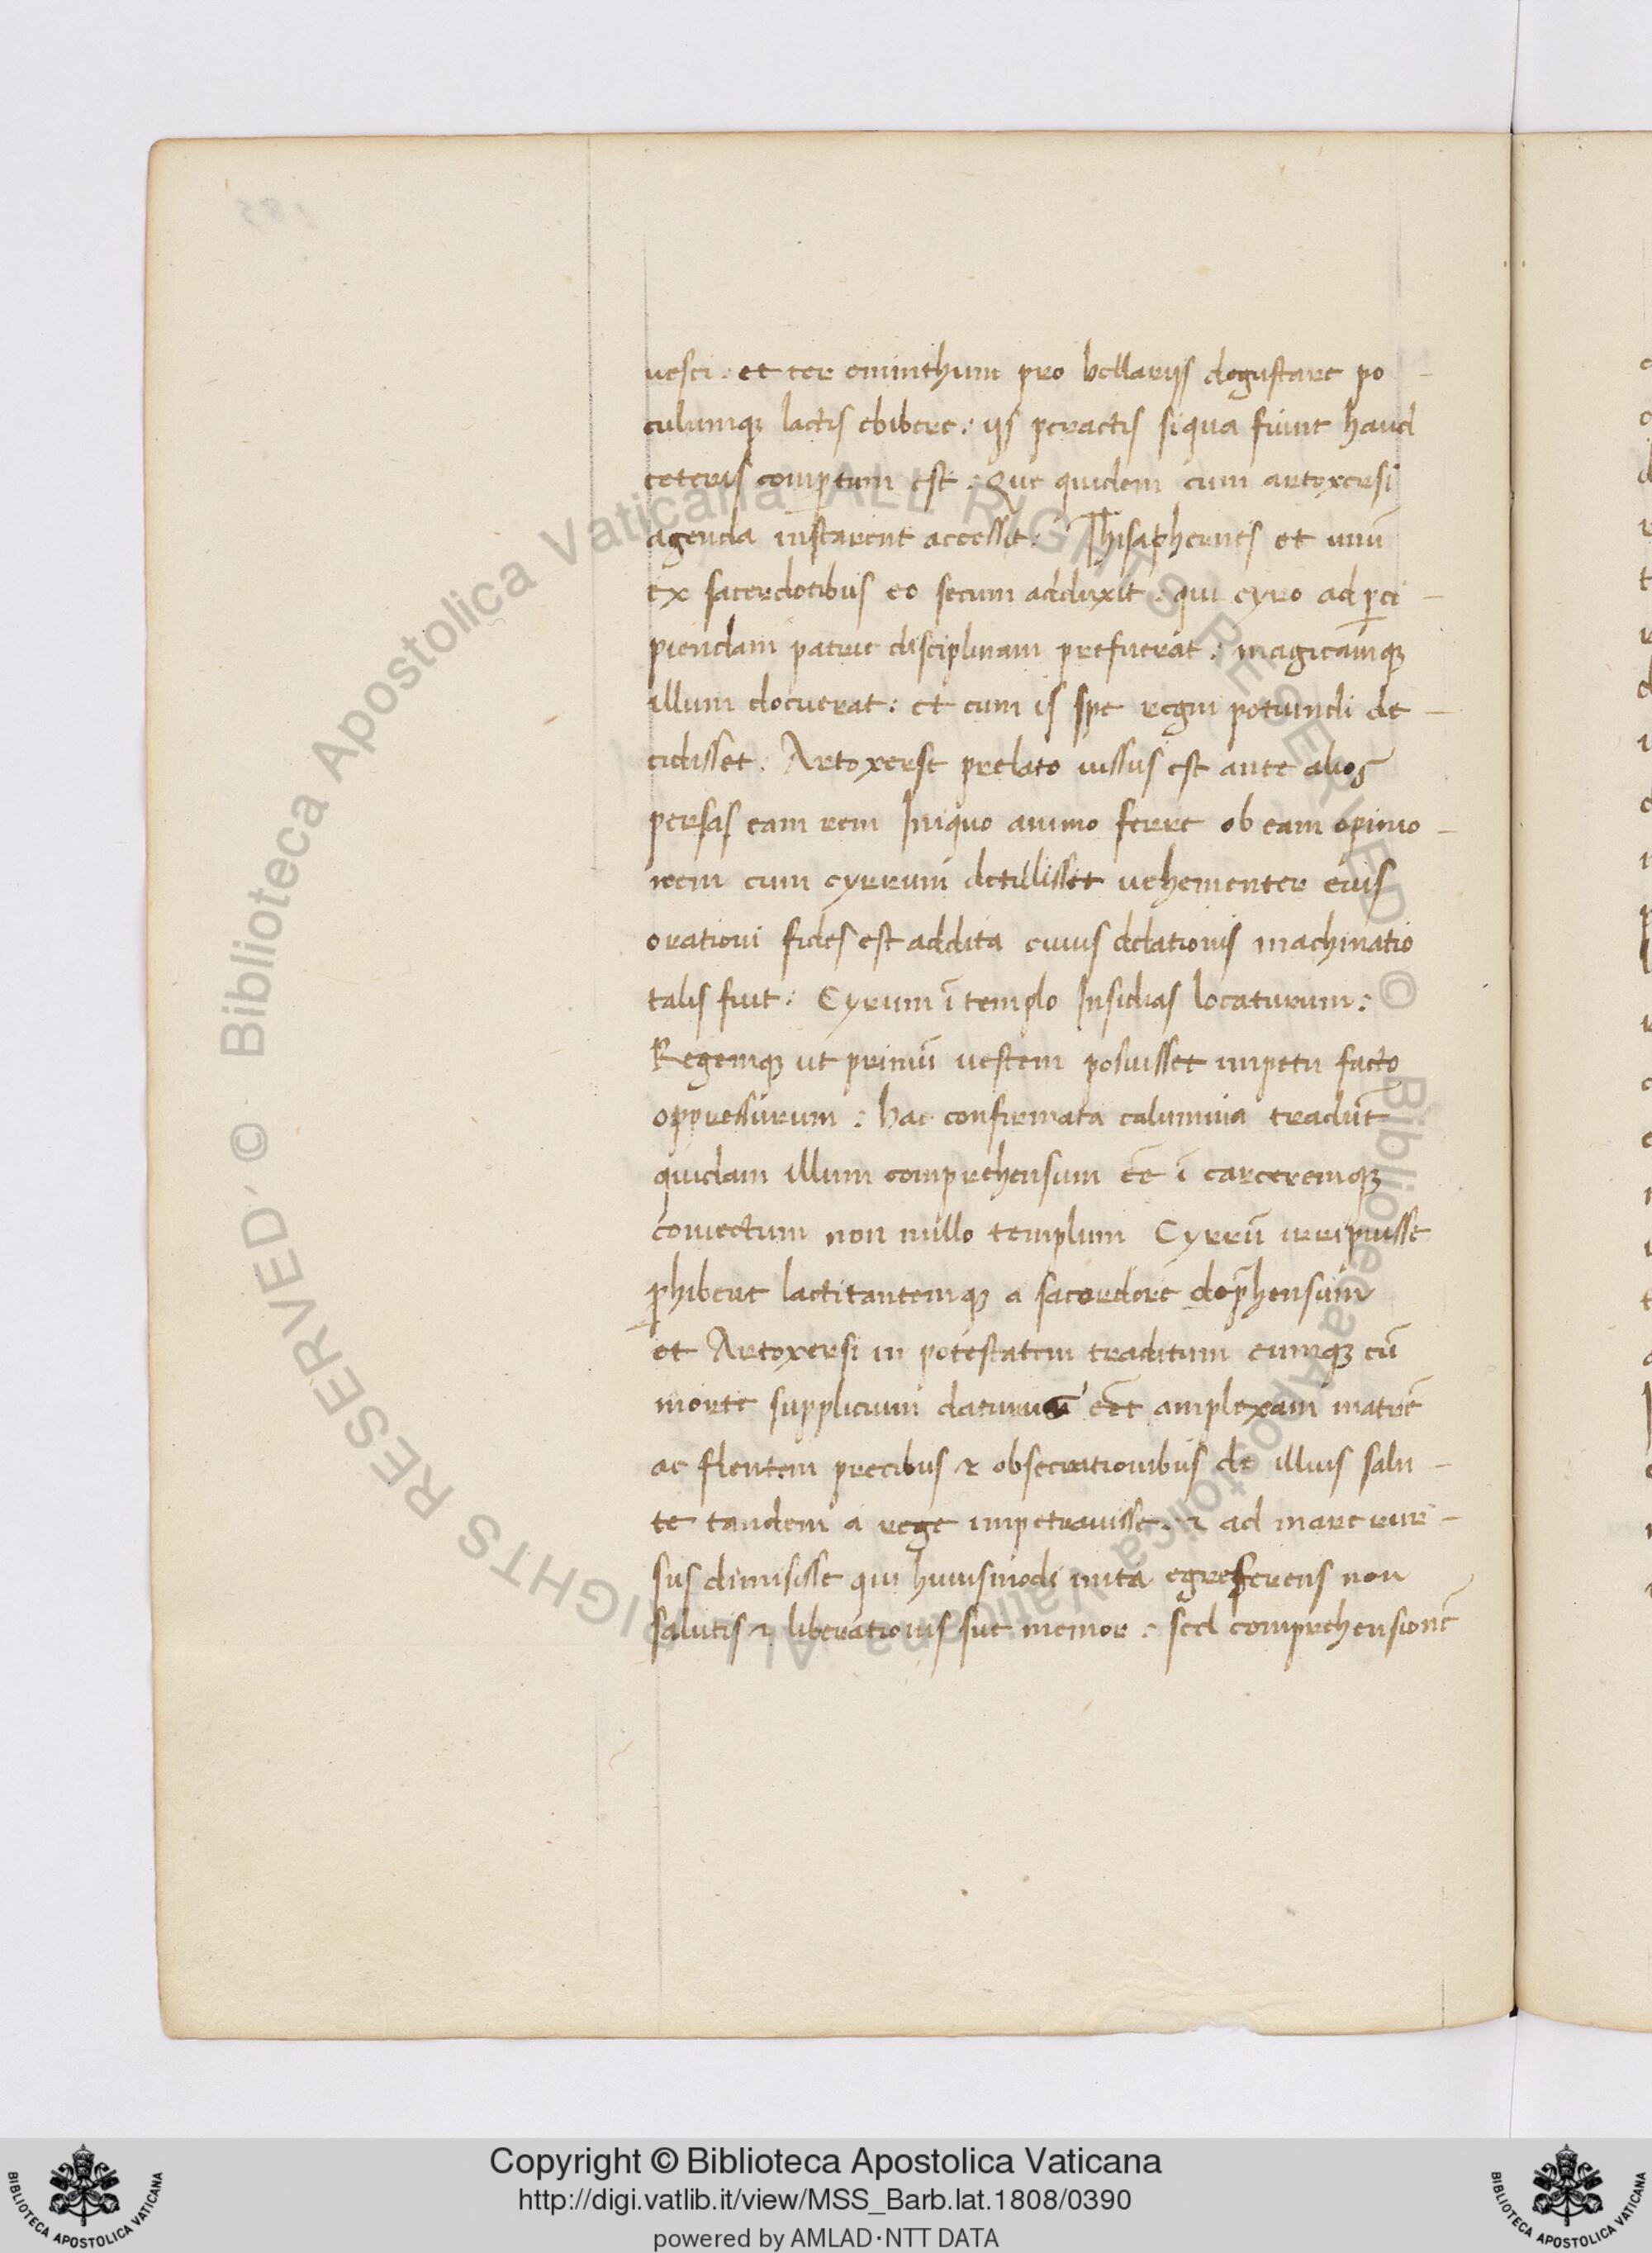 uesci. et ter eminthum pro bellarijs degustare po
culumqꝫ lactis ebibere: ijs peractis siqua fiunt haud
ceteris compertum est: Que quidem cum artoxersi
agenda instarent accessit: Thisaphernes et unū
ex sacerdotibus eo secum adduxit: qui cyro ad ꝑci
piendam patrie disciplinam prefuerat: magicamqꝫ
illum docuerat: et cum is spe regni potiundi de
cidisset. Artoxerse prelato uissus est ante alios
persas eam rem Iniquo animo ferre ob eam opinio
nem cum cyrrum detulisset uehementer eius
orationi fides est addita cuius delationis machinatio
talis fuit: Cyrum ī templo Insidias locaturum:
Regemqꝫ ut primū uestem posuisset impetu facto
oppressurum: hac confirmata calumnia tradūt
quidam illum comprehensum eē ī carceremqꝫ
coniectum non nullo templum Cyrrū irripuisse
ꝑhibent lactitantemqꝫ a sacerdote dep̄hensum
et Artoxersi in potestatem traditum eumqꝫ cū
morte supplicium daturū eēt amplexam matrē
ac flentem precibus & obsecrationibus de illius salu
te tandem a rege impetrauisse. & ad mare rur
sus dimisisse qui huiusmodi uita egreferens non
salutis & liberationis sue memor: sed comprehensionē
Copyright © Biblioteca Apostolica Vaticana
http://digi.vatlib.it/view/MSS_Barb.lat.1808/0390
powered by AMLAD·NTT DATA